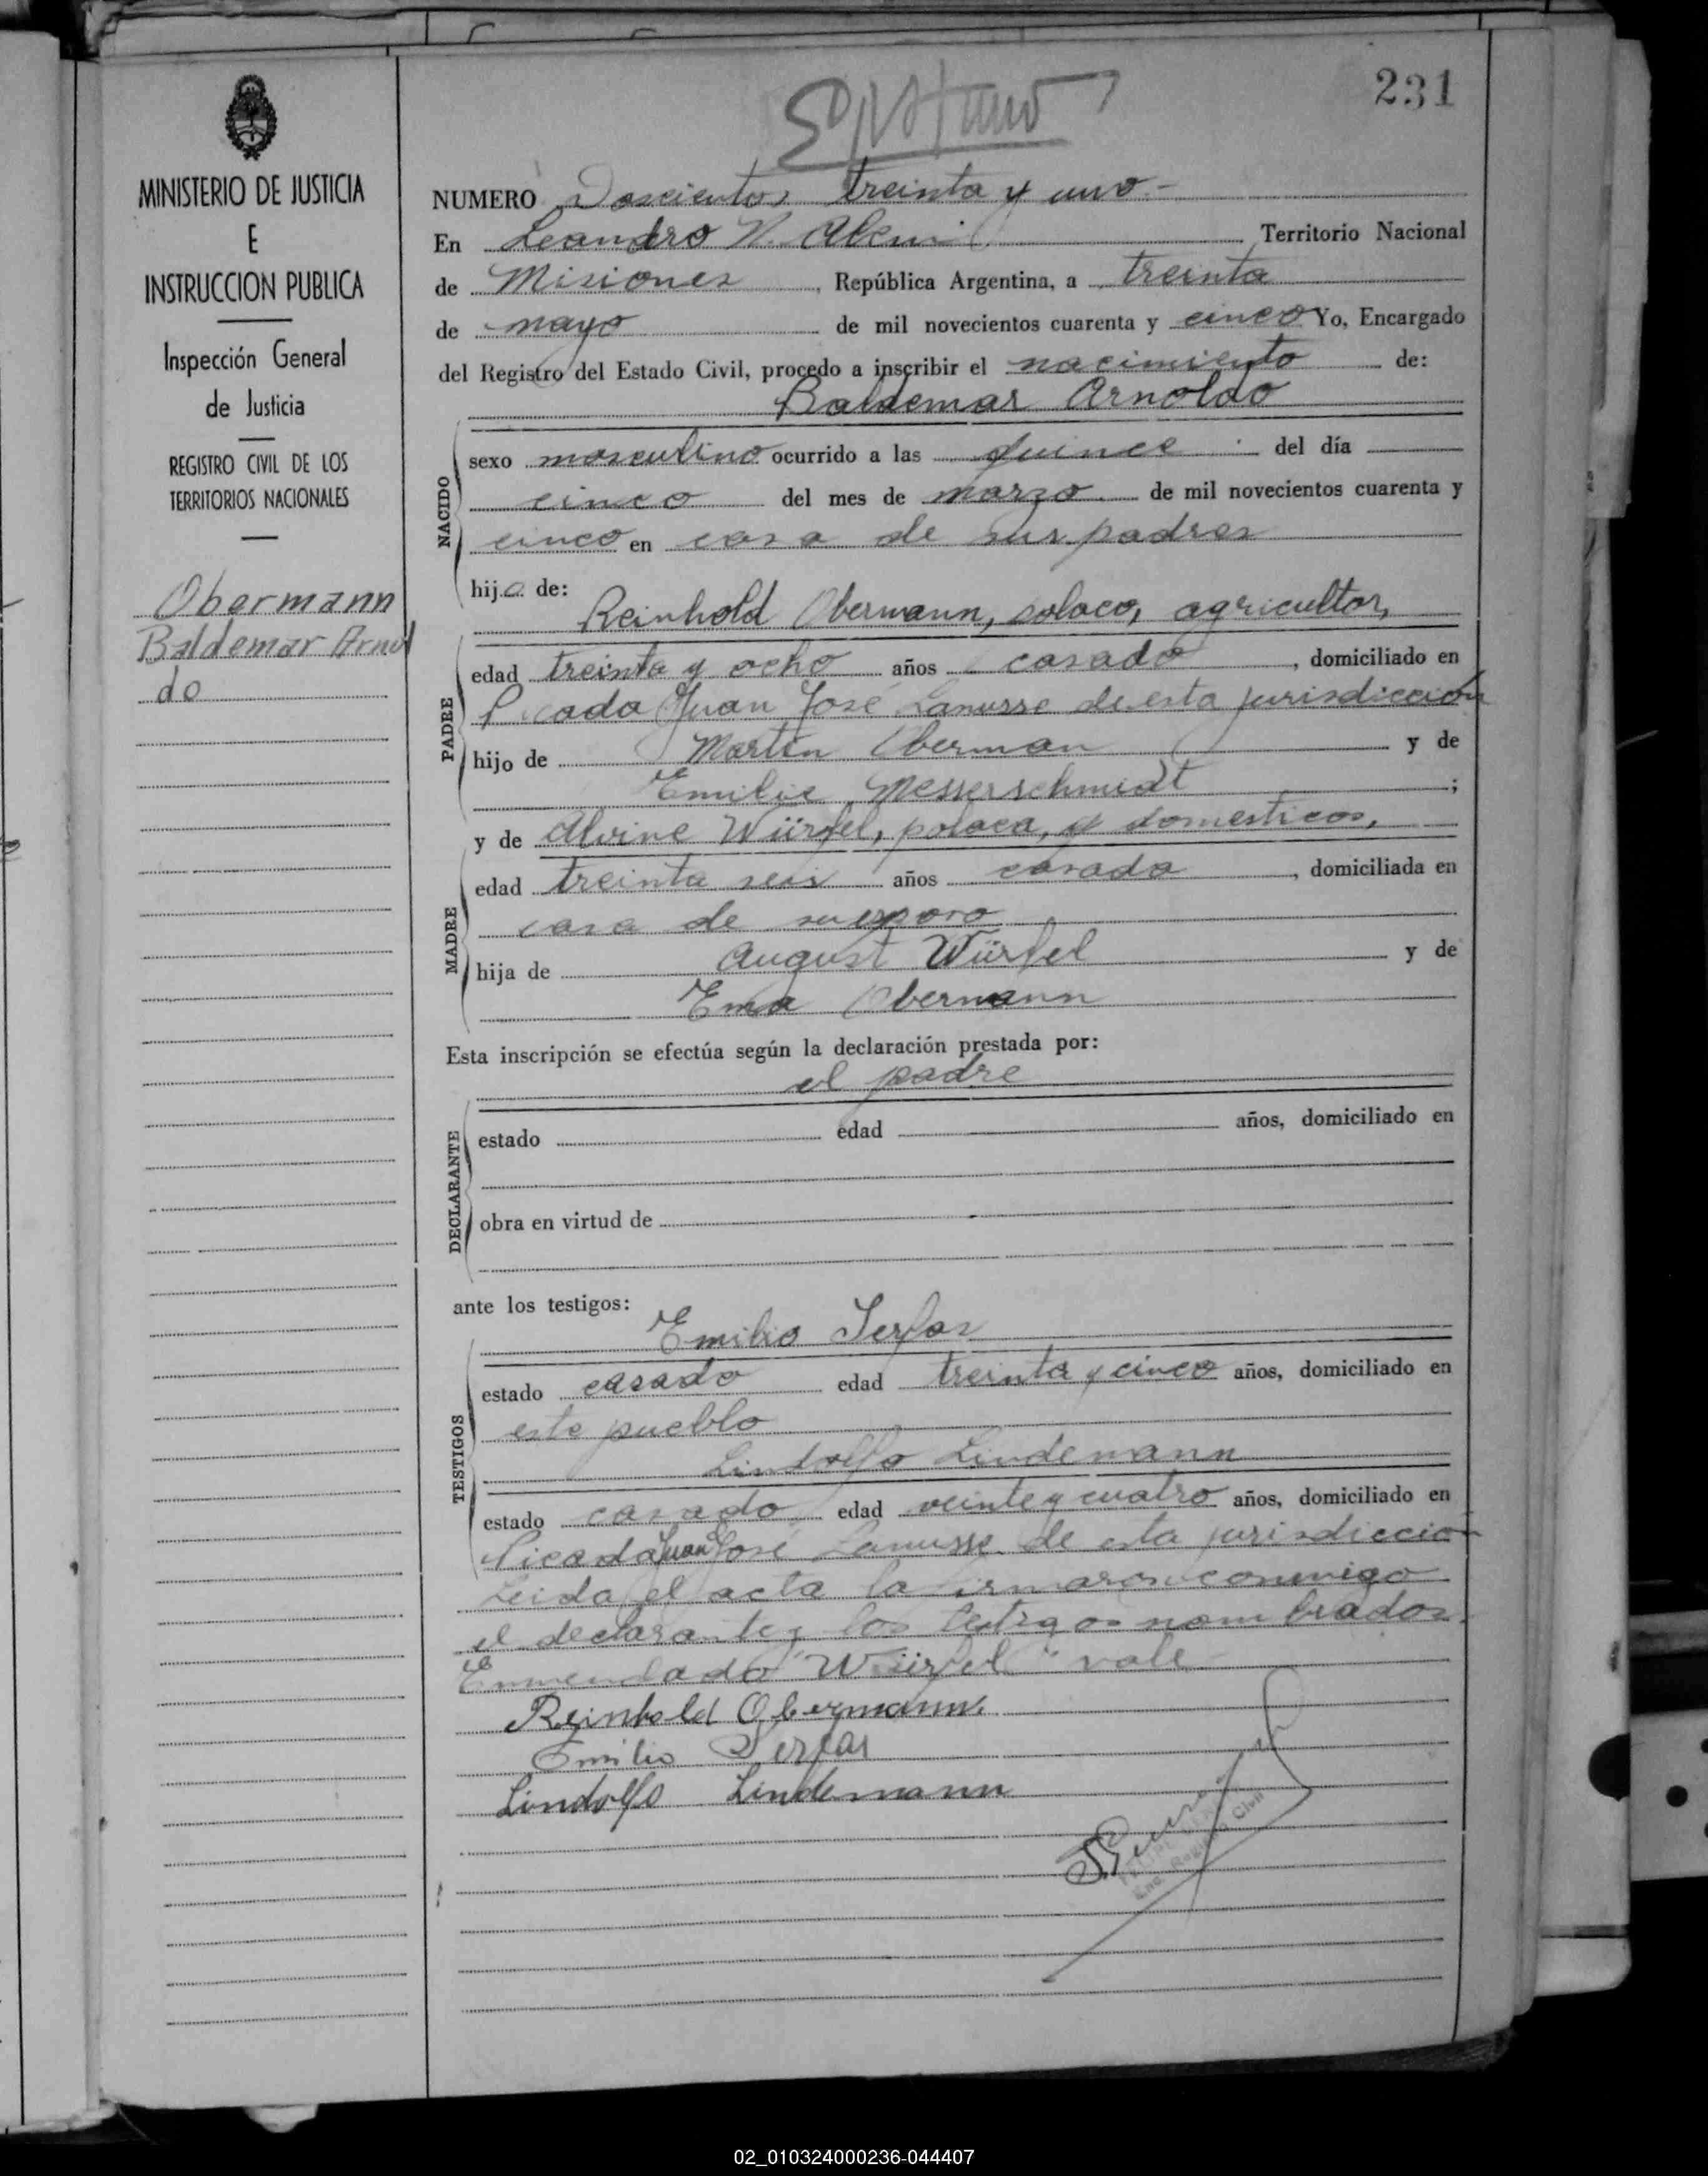 231
MINISTERIO DE JUSTICIA
E
INSTRUCCION PUBLICA
Inspección General
de Justicia
REGISTRO CIVIL DE LOS
TERRITORIOS NACIONALES
Obermann
Baldemar Arnol
do
NUMERO Doscientos treinta y uno-
En Leandro N. Alem Territorio Nacional
de Misiones, República Argentina, a treinta
de mayo de mil novecientos cuarenta y cinco Yo, Encargado
del Registro del Estado Civil, procedo a inscribir el nacimiento de:
Baldemar Arnoldo
NACIDO
sexo masculino ocurrido a las quince del día
cinco del mes de marzo de mil novecientos cuarenta y
cinco en casa de sus padres
hijo de:
Reinhold Obermann, polaco, agricultor,
PADRE
edad treinta y ocho años casado, domiciliado en
Picada Juan José Lanusse de esta jurisdicción
hijo de Martin Oberman y de
Emilie Messerschmidt;
y de Alvine Würfel, polaca, q domesticos,
MADRE
edad treinta seis años casada, domiciliada en
casa de su esposo
hija de August Würfel y de
Ema Obermann
Esta inscripción se efectúa según la declaración prestada por:
el padre
DECLARANTE
estado edad años, domiciliado en
obra en virtud de
ante los testigos:
Emilio Serfas
TESTIGOS
estado casado edad treinta y cinco años, domiciliado en
este pueblo
Lindolfo Lindemann
estado casado edad veinte y cuatro años, domiciliado en
Picada Juan José Lanusse de esta jurisdiccion
Leida el acta la firmaron conmigo
el declarante y los testigos nombrados.
Enmendado "Würfel" vale-
Reinhold Obermann
Emilio Serfas
Lindolfo Lindemann
Enc. Registro Civil
02_010324000236-044407